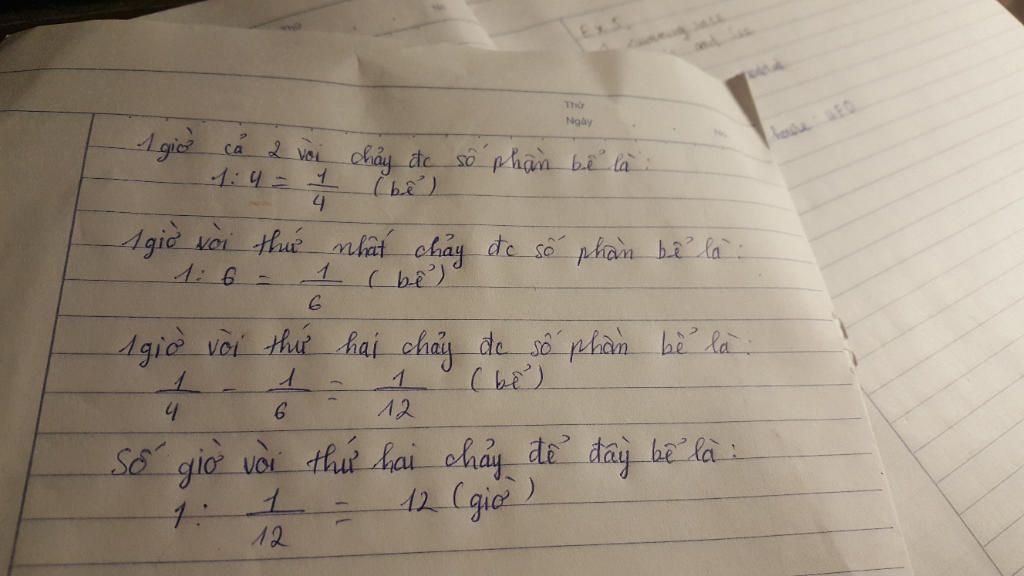 No
Thứ
Ex 5.
and
Thứ
Ngày
No
1 giờ cả 2 vòi chảy đc số phần bể là:
1 : 4 = 1/4 (bể)
1 giờ vòi thứ nhất chảy đc số phần bể là:
1 : 6 = 1/6 (bể)
1 giờ vòi thứ hai chảy đc số phần bể là:
1/4 - 1/6 = 1/12 (bể)
Số giờ vòi thứ hai chảy để đầy bể là:
1 : 1/12 = 12 (giờ)